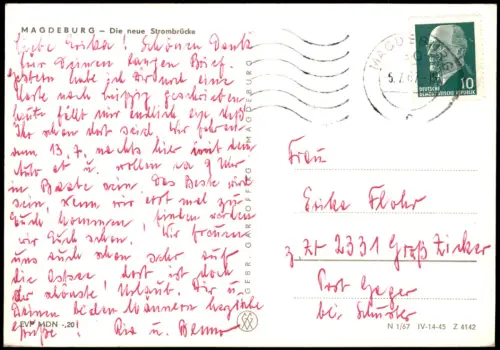 MAGDEBURG – Die neue Strombrücke
Liebe Erika! Schönen Dank
für Deinen langen Brief.
Gestern habe ich Dir noch eine
Karte nach geschrieben
heute fällt mir endlich ein, daß
Ihr schon dort seid. Wir fahren
am 13.7. nachts hier mit dem
Auto ab u. wollen so 9 Uhr
in Baabe sein. Das Beste wird
sein, wenn wir erst mal zu
Euch kommen, finden werden
wir Euch schon. Wir freuen
uns auch schon sehr auf
die Ostsee, dort ist doch
der schönste Urlaub. Dir u.
Deinen beiden Männern herzliche
Grüße! u. Benno
EVP MDN -,20
GEBR. GARLOFF KG MAGDEBURG
MAGDEBURG
5.7.67
10
DEUTSCHE
DEMOKRATISCHE REPUBLIK
Frau
Erika Flohr
z. Zt 2331 Groß Zicker
Post Gager
bei Schuster
N 1/67 IV-14-45 Z 4142